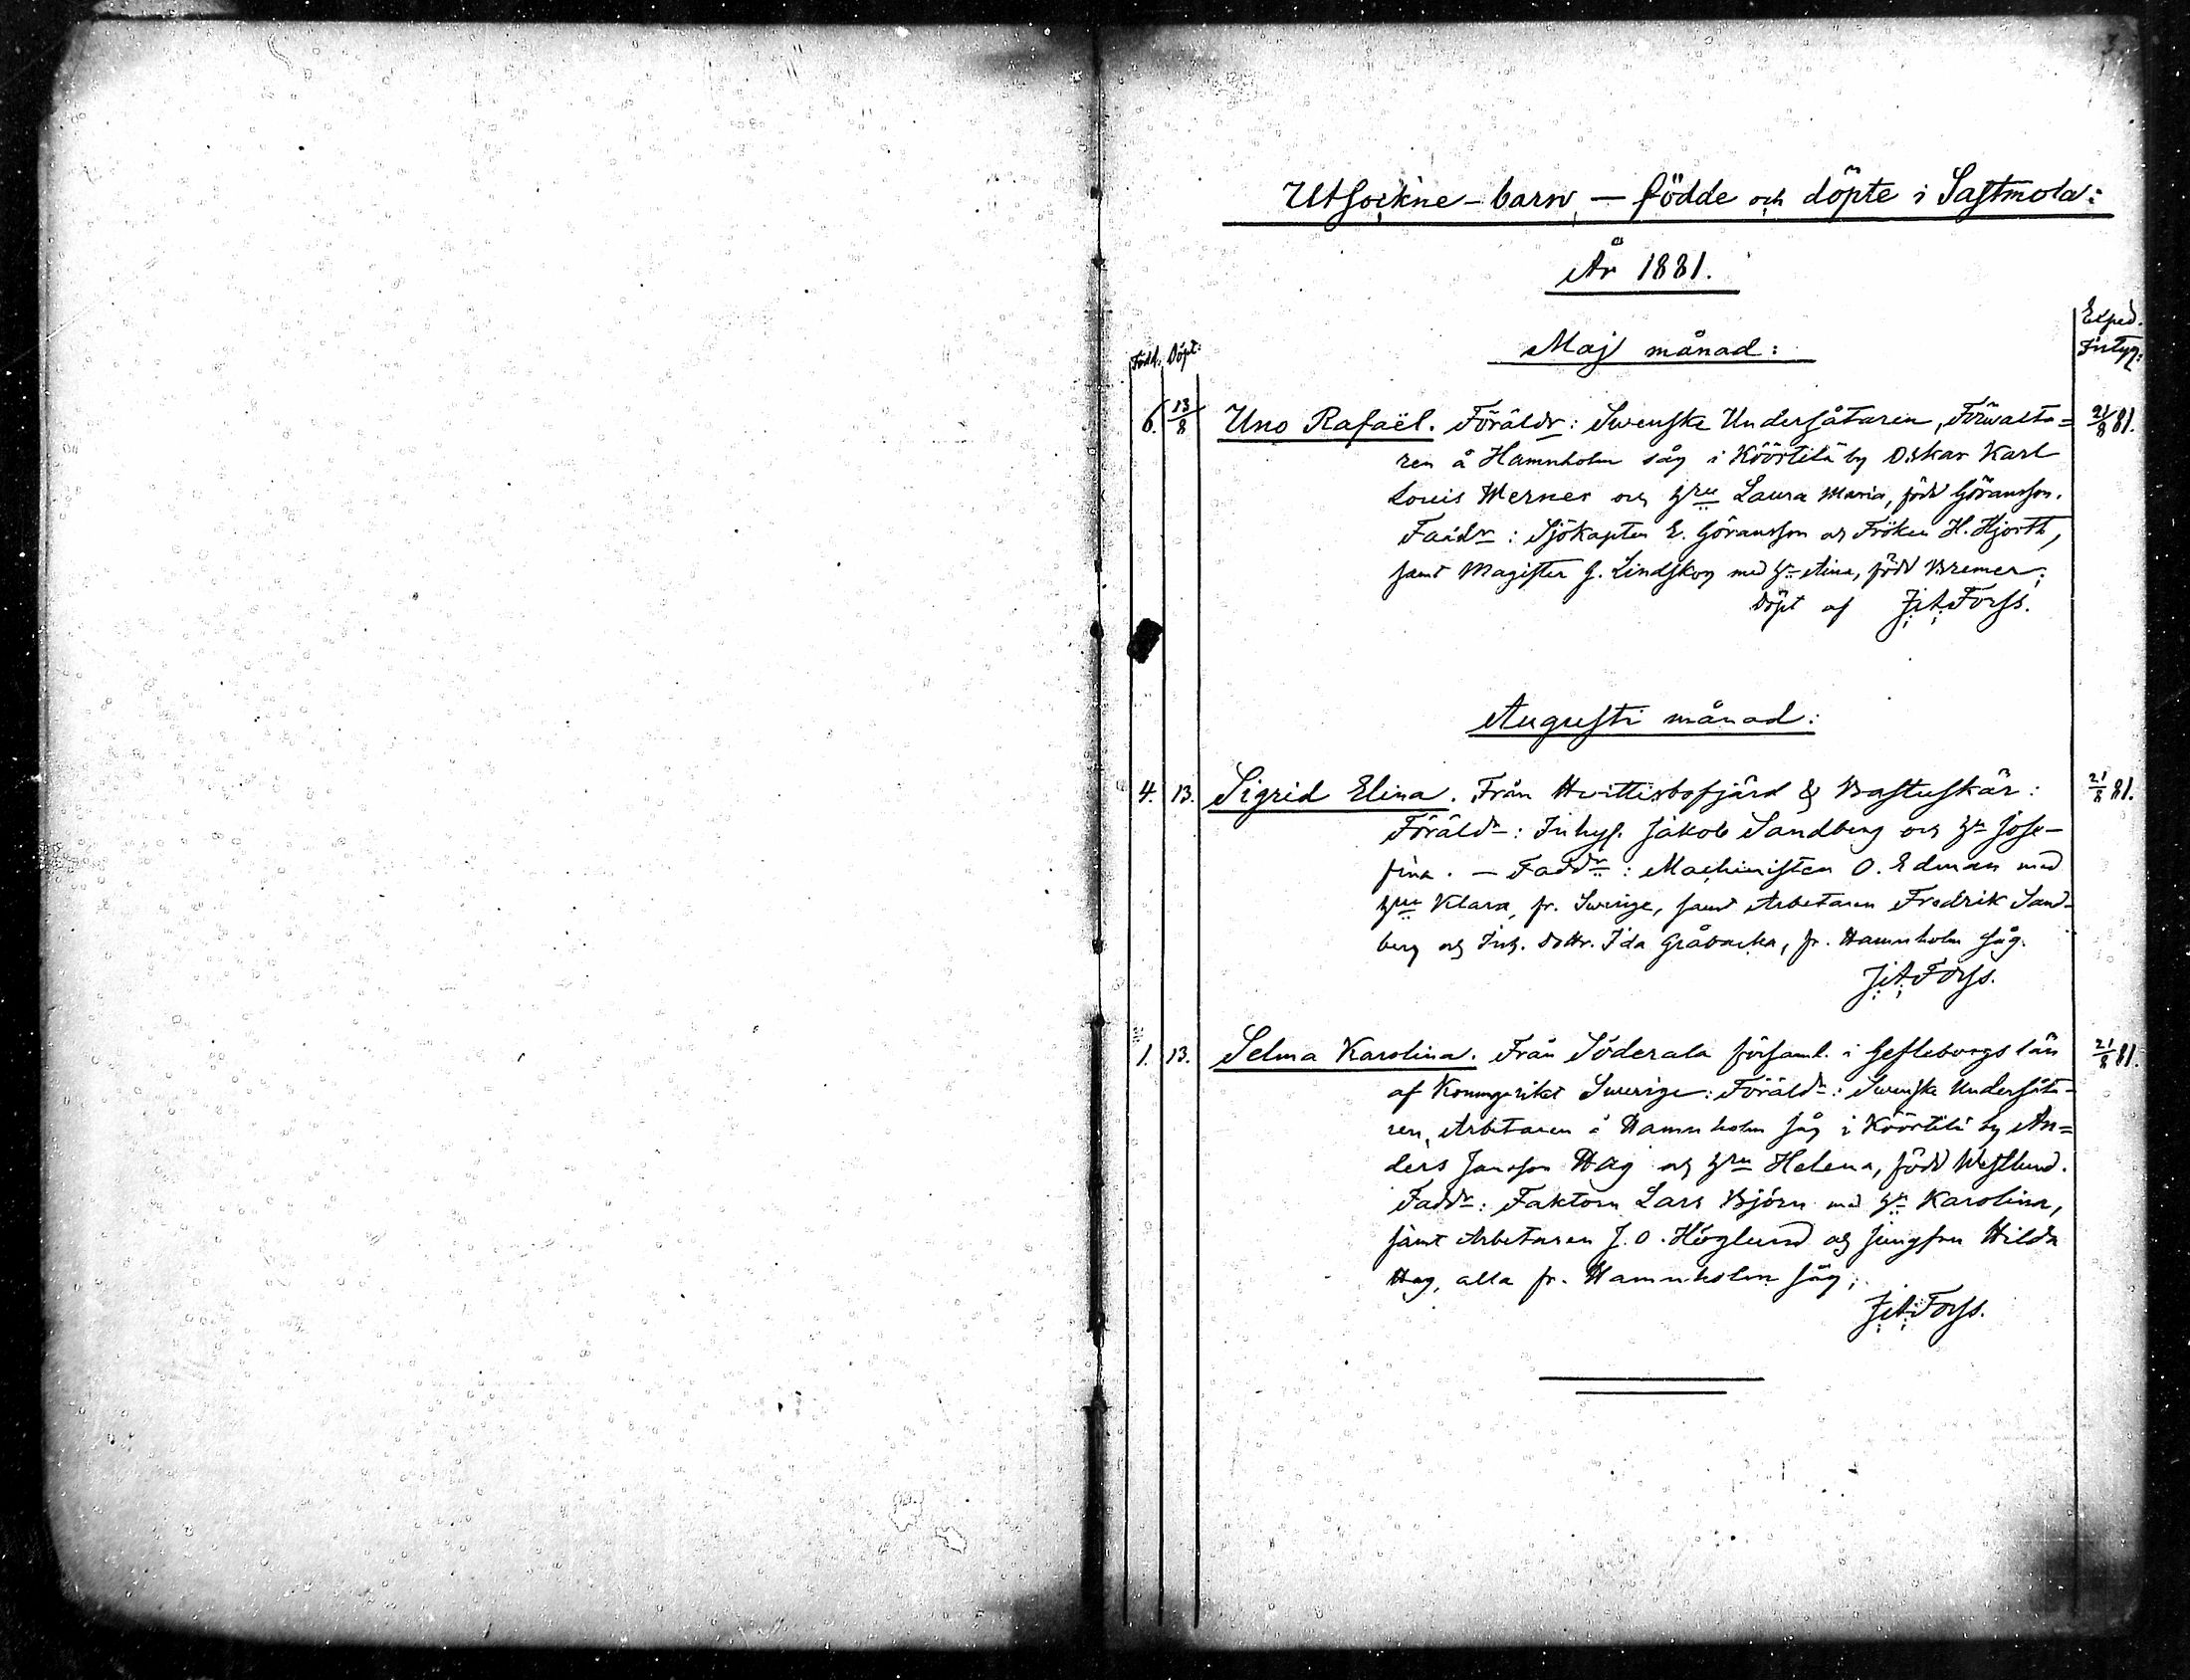 Utsockne-barn, — födde och döpte i Sastmola:
År 1881.
Exped.
Intyg:
Född. Döpt:
Maj månad:
6. 13/8 Uno Rafaël. Föräldr: Swenske Undersåtaren, Förwalta= 21/8 81.
ren å Hamnholm såg i Köörtilä by Oskar Karl
Louis Werner och hru Laura Maria, född Göransson.
Faddr: Sjökapten E. Göransson och Fröken H. Hjorth,
samt Magister G. Lindskog med h. Alina, född Bremer;
Döpt af J.A. Forss.
Augusti månad:
4. 13. Sigrid Elina. Från Hvittisbofjärd & Bastuskär: 21/8 81.
Föräldr: Inhys. Jakob Sandberg och h. Jose-
fina. — Faddr: Machinisten O. Edman med
hru Klara, fr. Swerige, samt Arbetaren Fredrik Sand-
berg och Inh. dottr. Ida Gråbacka, fr. Hamnholm såg.
J.A. Forss.
1. 13. Selma Karolina. Från Söderala församl. i Gefleborgs län 21/8 81.
af Konungariket Swerige: Föräldr: Swenske Undersåta-
ren, Arbetaren å Hamnholm såg i Köörtilä by An=
ders Jansson Hag och hru Helena, född Westlund.
Faddr: Faktorn Lars Björn med h. Karolina,
samt Arbetaren J. O. Höglund och jungfru Hilda
Hag, alla fr. Hamnholm såg;
J.A. Forss.